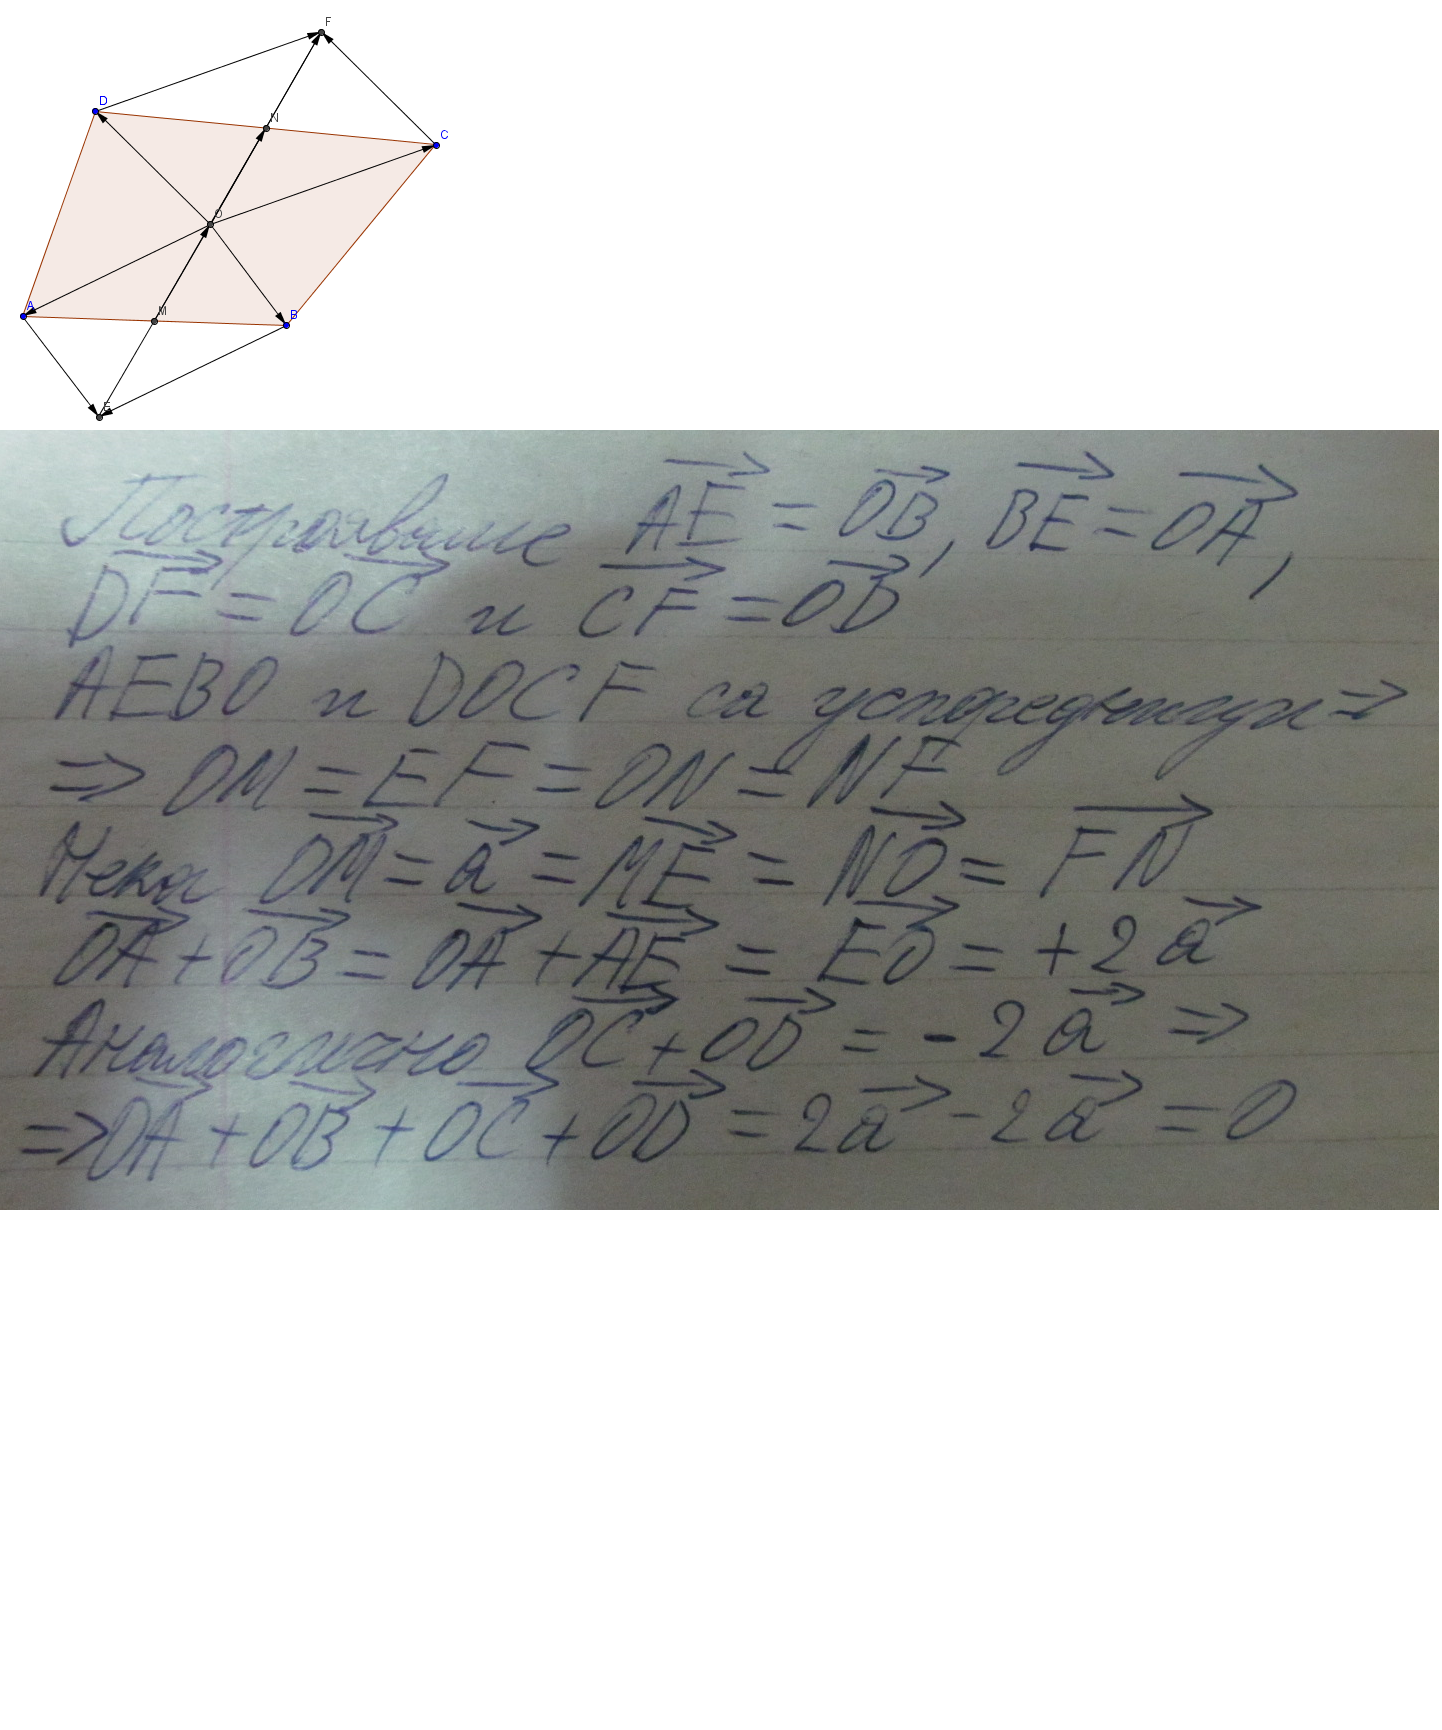 F
D
N
C
O
A
M
B
E
Построяваме AE→ = OB→, BE→ = OA→,
DF→ = OC→ и CF→ = OD→
AEBO и DOCF са успоредници ⇒
⇒ OM = EF = ON = NF
Нека OM→ = a→ = ME→ = NO→ = FN→
OA→ + OB→ = OA→ + AE→ = EO→ = +2a→
Аналогично OC→ + OD→ = -2a→ ⇒
⇒ OA→ + OB→ + OC→ + OD→ = 2a→ - 2a→ = 0